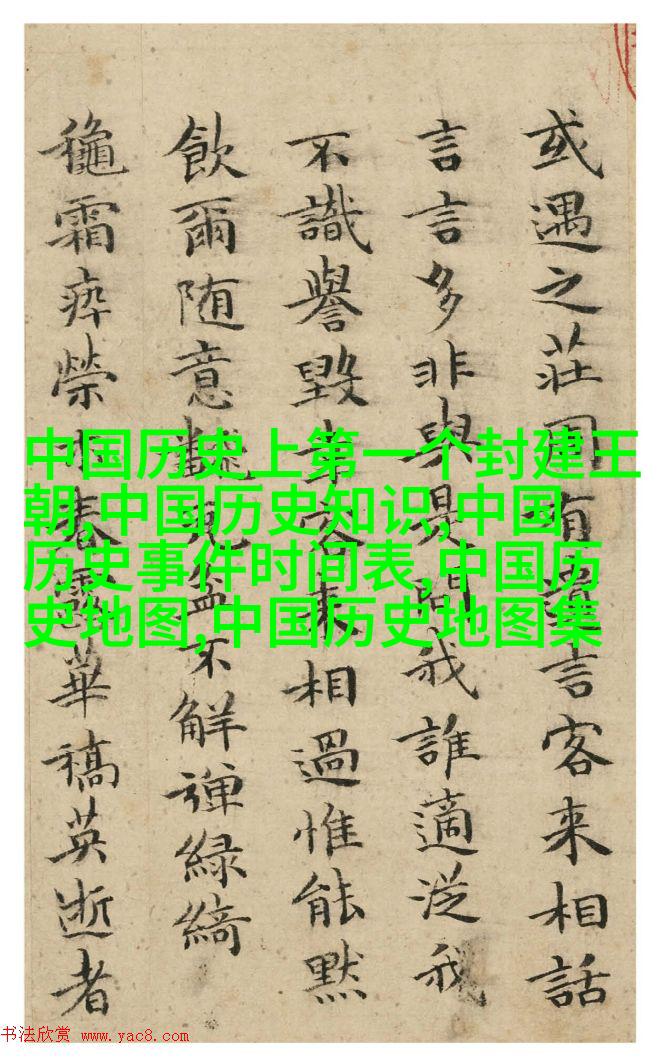 中国历史上第一个封建王
朝,中国历史知识,中国
历史事件时间表,中国历
史地图,中国历史地图集
或遇之莊有言客来相話
言言多非與是問我誰適從我
不識譽毀客来相過惟能默
飲爾随意盆不解彈緑綺
穐霜瘁榮春露華稿英逝者
书法欣赏 www.yac8.com